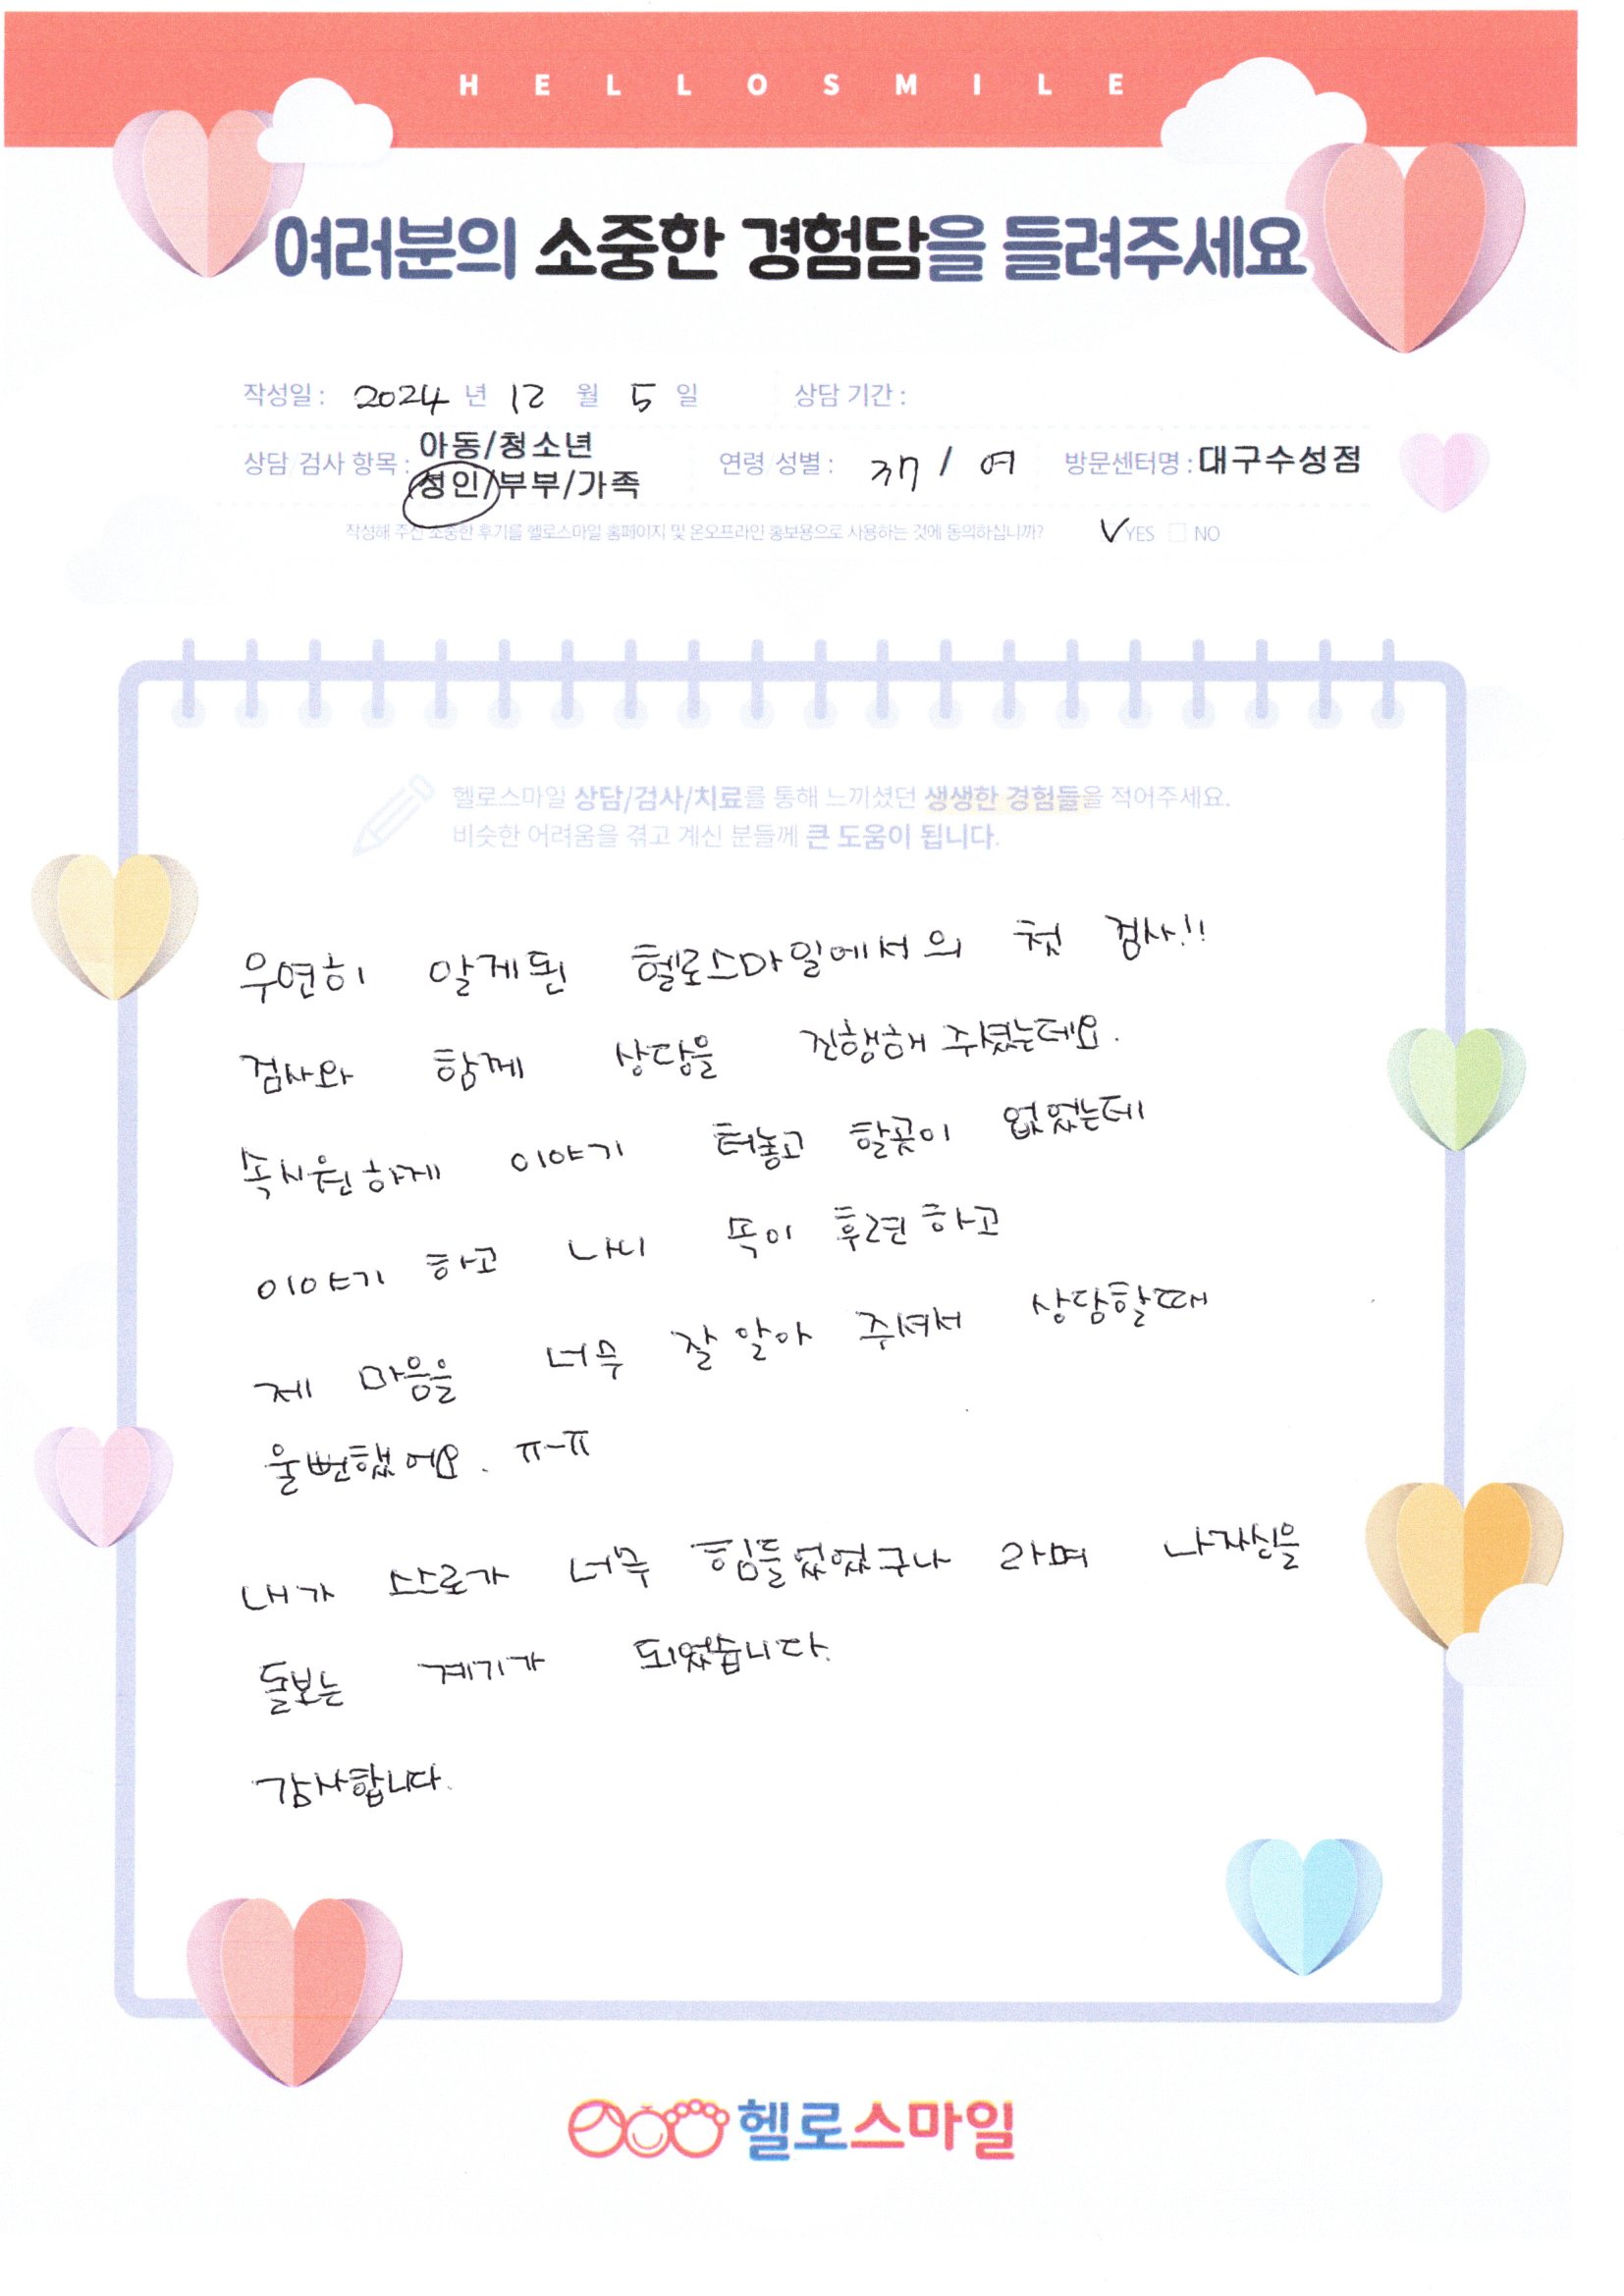 HELLOSMILE
여러분의 소중한 경험담을 들려주세요
작성일 : 2024 년 12 월 5 일 상담 기간 :
상담 검사 항목 : 아동/청소년
성인/부부/가족
연령 성별 : 37 / 여 방문센터명 : 대구수성점
작성해 주신 소중한 후기를 헬로스마일 홈페이지 및 온오프라인 홍보용으로 사용하는 것에 동의하십니까? YES NO
헬로스마일 상담/검사/치료를 통해 느끼셨던 생생한 경험들을 적어주세요.
비슷한 어려움을 겪고 계신 분들께 큰 도움이 됩니다.
우연히 알게된 헬로스마일에서의 첫 검사!!
검사와 함께 상담을 진행해 주셨는데요.
속시원하게 이야기 터놓고 할곳이 없었는데
이야기 하고 나니 속이 후련하고
제 마음을 너무 잘 알아 주셔서 상담할때
울뻔했어요. ㅠ-ㅠ
내가 스스로가 너무 힘들었었구나 라며 나자신을
돌보는 계기가 되었습니다.
감사합니다.
헬로스마일